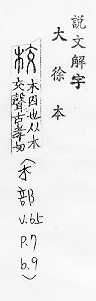 說文解字
大徐本
校
木囚也从木
交聲古孝切
〈木部
v.65
p.7
b.9〉